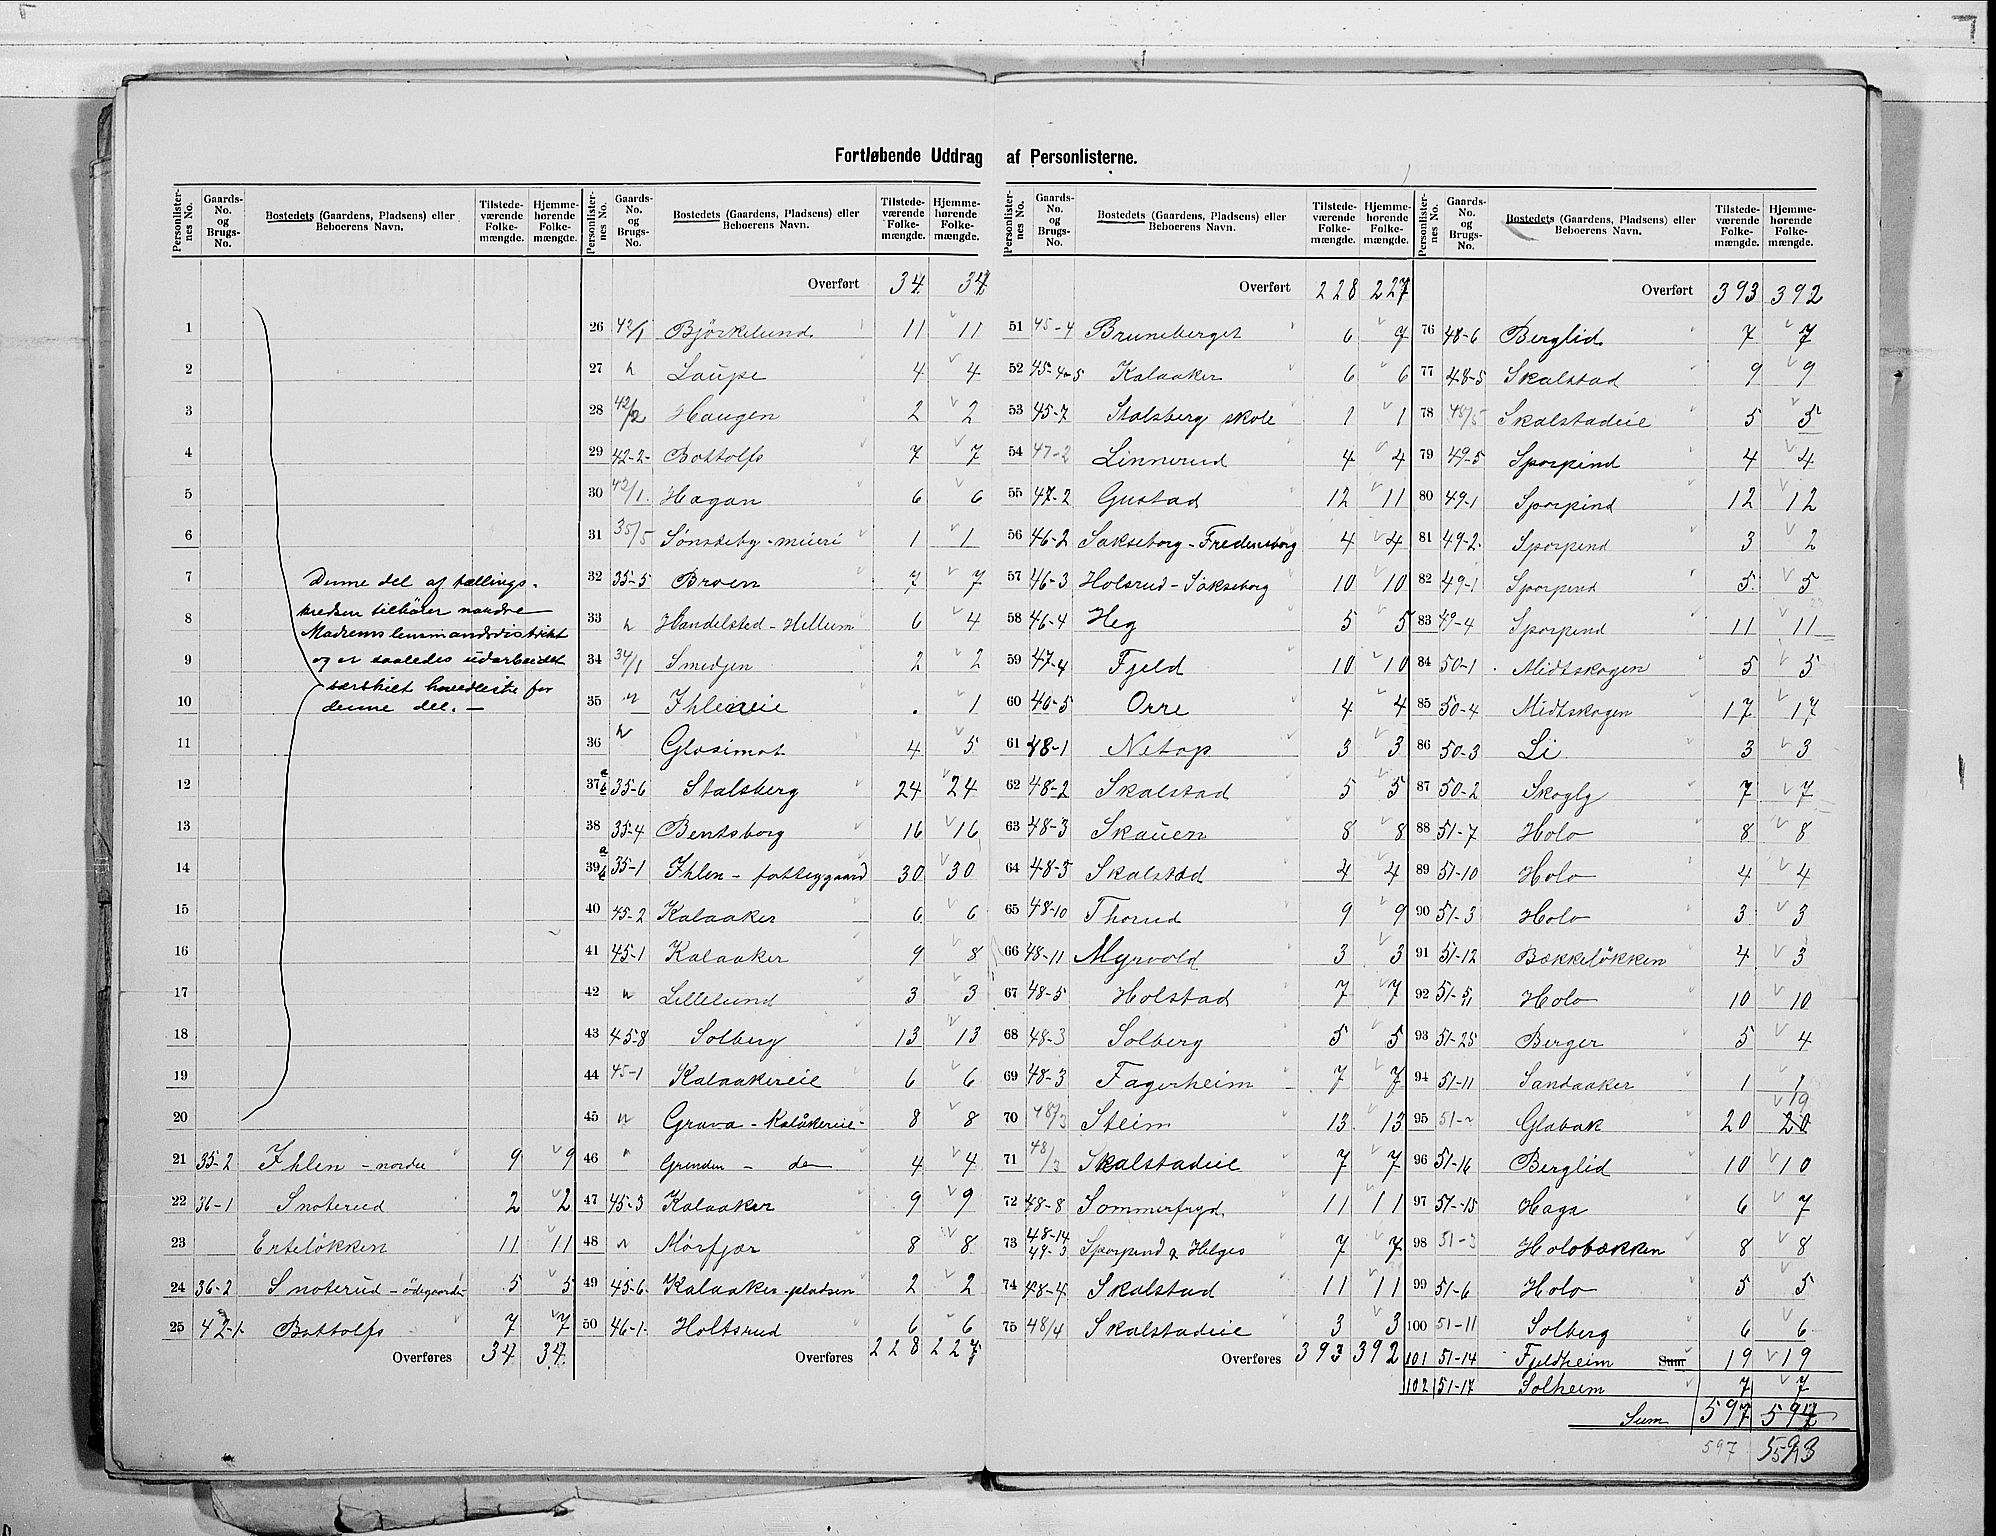 Fortløbende Uddrag af Personlisterne.
Personlister-nes No. | Gaards-No. og Brugs-No. | Bostedets (Gaardens, Pladsens) eller Beboerens Navn. | Tilstede-værende Folke-mængde. | Hjemme-hørende Folke-mængde.
1
2
3
4
5
6
7
8
9
10
11
12
13
14
15
16
17
18
19
20
Denne del af tællings-
kredsen tilhører nordre
lensmandsdistrikt
og er saaledes udarbeidet
særskilt hovedliste for
denne del. —
21 35-2 Ihlen - nordre 9 9
22 36-1 Snoterud 2 2
23 Erteløkken 11 11
24 36-2 Snoterud - ödegaarden 5 5
25 42-1 Bottolfs 7 7
Overføres 34 34
Personlister-nes No. | Gaards-No. og Brugs-No. | Bostedets (Gaardens, Pladsens) eller Beboerens Navn. | Tilstede-værende Folke-mængde. | Hjemme-hørende Folke-mængde.
Overført 34 34
26 42/1 Björkelund 11 11
27 " Laupe 4 4
28 42/2 Haugen 2 2
29 42-2 Bottolfs 7 7
30 42/1 Hagan 6 6
31 35/5 Sønsteby - meieri 1 1
32 35-5 Broen 7 7
33 " Handelsted - Hellum 6 4
34 34/1 Smedjen 2 2
35 " Ihleneie . 1
36 " Glosimot 4 5
37 a b 35-6 Stalsberg 24 24
38 35-4 Bentsborg 16 16
39 a b 35-1 Ihlen - fattiggaard 30 30
40 45-2 Kalaaker 6 6
41 45-1 Kalaaker 9 8
42 " Lillelund 3 3
43 45-8 Solberg 13 13
44 45-1 Kalaakereie 6 6
45 " Grava - Kalåkereie- 8 8
46 " Grenden - do 4 4
47 45-3 Kalaaker 9 9
48 " Mørfjær 8 8
49 45-6 Kalaaker-pladsen 2 2
50 46-1 Holtsrud 6 6
Overføres 228 227
Personlister-nes No. | Gaards-No. og Brugs-No. | Bostedets (Gaardens, Pladsens) eller Beboerens Navn. | Tilstede-værende Folke-mængde. | Hjemme-hørende Folke-mængde.
Overført 228 227
51 45-4 Bruneberget 6 7
52 45-4-5 Kalaaker 6 6
53 45-7 Stalsberg skole 1 1
54 47-2 Linnerud 4 4
55 47-2 Gustad 12 11
56 46-2 Sakseborg - Fredensborg 4 4
57 46-3 Holsrud - Sakseborg 10 10
58 46-4 Heg 5 5
59 47-4 Fjeld 10 10
60 46-5 Orre 4 4
61 48-1 Netop 3 3
62 48-2 Skalstad 5 5
63 48-3 Skauen 8 8
64 48-5 Skalstad 4 4
65 48-10 Thorud 9 9
66 48-11 Myrvold 3 3
67 48-5 Holstad 7 7
68 48-3 Solberg 5 5
69 48-3 Fagerheim 7 7
70 48/3 Steim 13 13
71 48/3 Skalstadeie 7 7
72 48-8 Sommerfryd 11 11
73 48-14 49-3 Sporpind & Helges 7 7
74 48-4 Skalstad 11 11
75 48/4 Skalstadeie 3 3
Overføres 393 392
Personlister-nes No. | Gaards-No. og Brugs-No. | Bostedets (Gaardens, Pladsens) eller Beboerens Navn. | Tilstede-værende Folke-mængde. | Hjemme-hørende Folke-mængde.
Overført 393 392
76 48-6 Berglid 7 7
77 48-5 Skalstad 9 9
78 48/5 Skalstadeie 5 5
79 49-5 Sporpind 4 4
80 49-1 Sporpind 12 12
81 49-2 Sporpend 3 2
82 49-1 Sporpend 5 5
83 49-4 Sporpend 11 11
84 50-1 Midtskogen 5 5
85 50-4 Midtskogen 17 17
86 50-3 Li 3 3
87 50-2 Skogly 7 7
88 51-7 Holo 8 8
89 51-10 Holo 4 4
90 51-3 Holo 3 3
91 51-12 Bækkeløkken 4 3
92 51-5, 11 Holo 10 10
93 51-25 Berger 5 4
94 51-11 Sandaaker 1 1
95 51-" Glabak 20 20 19
96 51-16 Berglid 10 10
97 51-15 Haga 6 7
98 51-3 Holobækken 8 8
99 51-6 Holo 5 5
100 51-11 Solberg 6 6
101 51-14 Fjeldheim Sum 19 19
102 51-17 Solheim 7 7
Sum 597 597
597 593